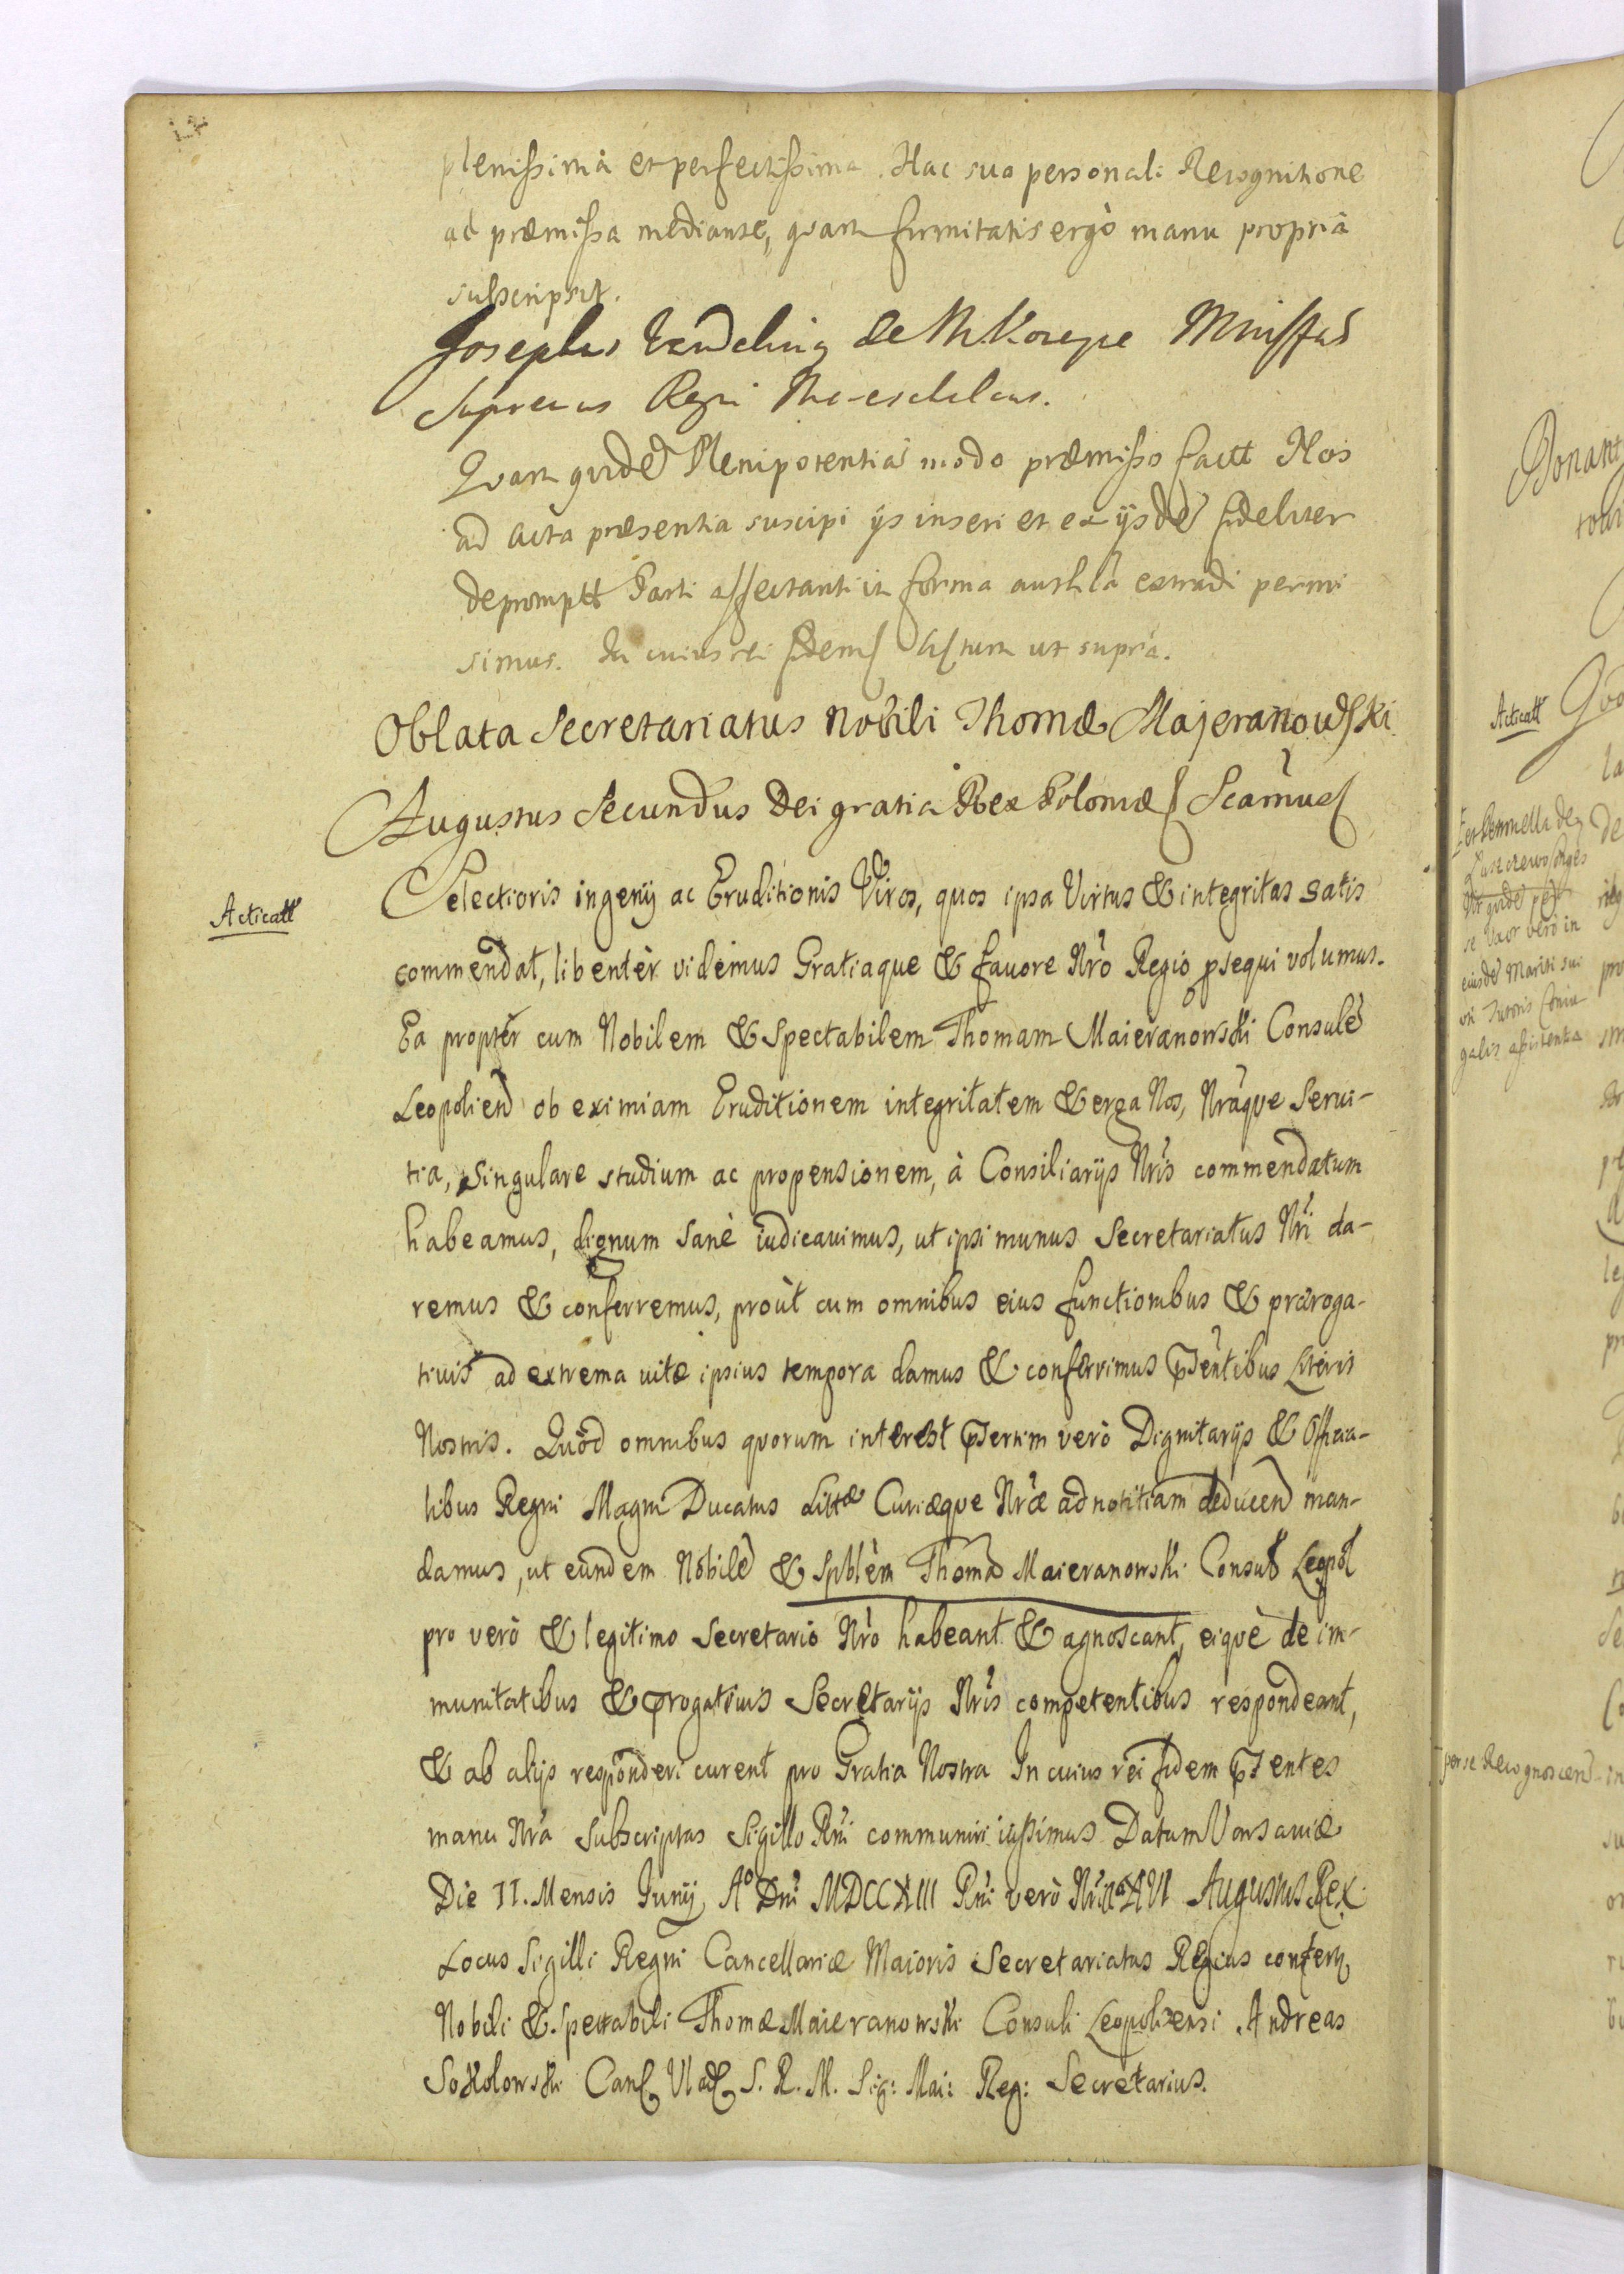 plenissimâ et perfectissima. Hac sua personali Recognitione
ad præmissa mediante, quam firmitatis ergò manu propriâ
subscripsit.
Josephus de
Supremus Regni
Quam quidē Plenipotentiā modo præmisso factt Nos
ad acta præsentia suscipi ijs inseri et ex ijsdē fideliter
depromptt Parti affectanti in forma authā extradi permi
simus. In cuius rei fidem Actum ut supra.
Oblata Secretariatus Nobili Thomæ Majeranowski
Augustus Secundus Dei gratia Rex Poloniæ
Acticatt
Selectioris ingenij ac Eruditionis Viros, quos ipsa Virtus & integritas satis
commendat, libentèr vidèmus Gratiaque & favore Nrò Regiò psequi volumus.
Ea proptèr cum Nobilem & Spectabilem Thomam Maieranowski Consulē
Leopolien ob eximiam Eruditionem integritatem & erga Nos, Nrâque Servi-
tia, Singulare studium ac propensionem, à Consiliarijs Nris commendatum
habeamus, dignum sanè iudicavimus, ut ipsi munus Secretariatus Nri da-
remus & conferremus, proùt cum omnibus eius functionibus & præroga-
tivis ad extrema vitæ ipsius tempora damus & conferrimus pсsentibus Literis
Nostris. Quòd omnibus quorum interest psertim verò Dignitarijs & Officia-
libus Regni Magni Ducatus Littæ Curiæque Nræ ad notitiam deducen man-
damus, ut eundem Nobilē & Spblèm Thomā Maieranowski Consul Leopol
pro verò & legitimo Secretario Nrò habeant & agnoscant, eiquè de im-
munitatibus & progativis Secretarijs Nris competentibus respondeant,
& ab alijs respondèri curent pro Gratia Nostra In cuius rèi fidem psentes
manu Nrâ Subscriptas Sigillo Rni communiri iussimus Datum Varsaviæ
Die II. Mensis Junij A° Dni MDCCXIII Rni verò Nri XVI Augustus Rex
Locus Sigilli Regni Cancellariæ Maioris Secretariatus Regius confertr
Nobili & Spectabili Thomæ Maieranowski Consuli Leopoliensi Andreas
Sokolowski S. R. M. Sig: Mai: Reg: Secretarius.
Bonant
Acticatt
eiusdē Mariti sui
galis assistentia
per se Recognoscen